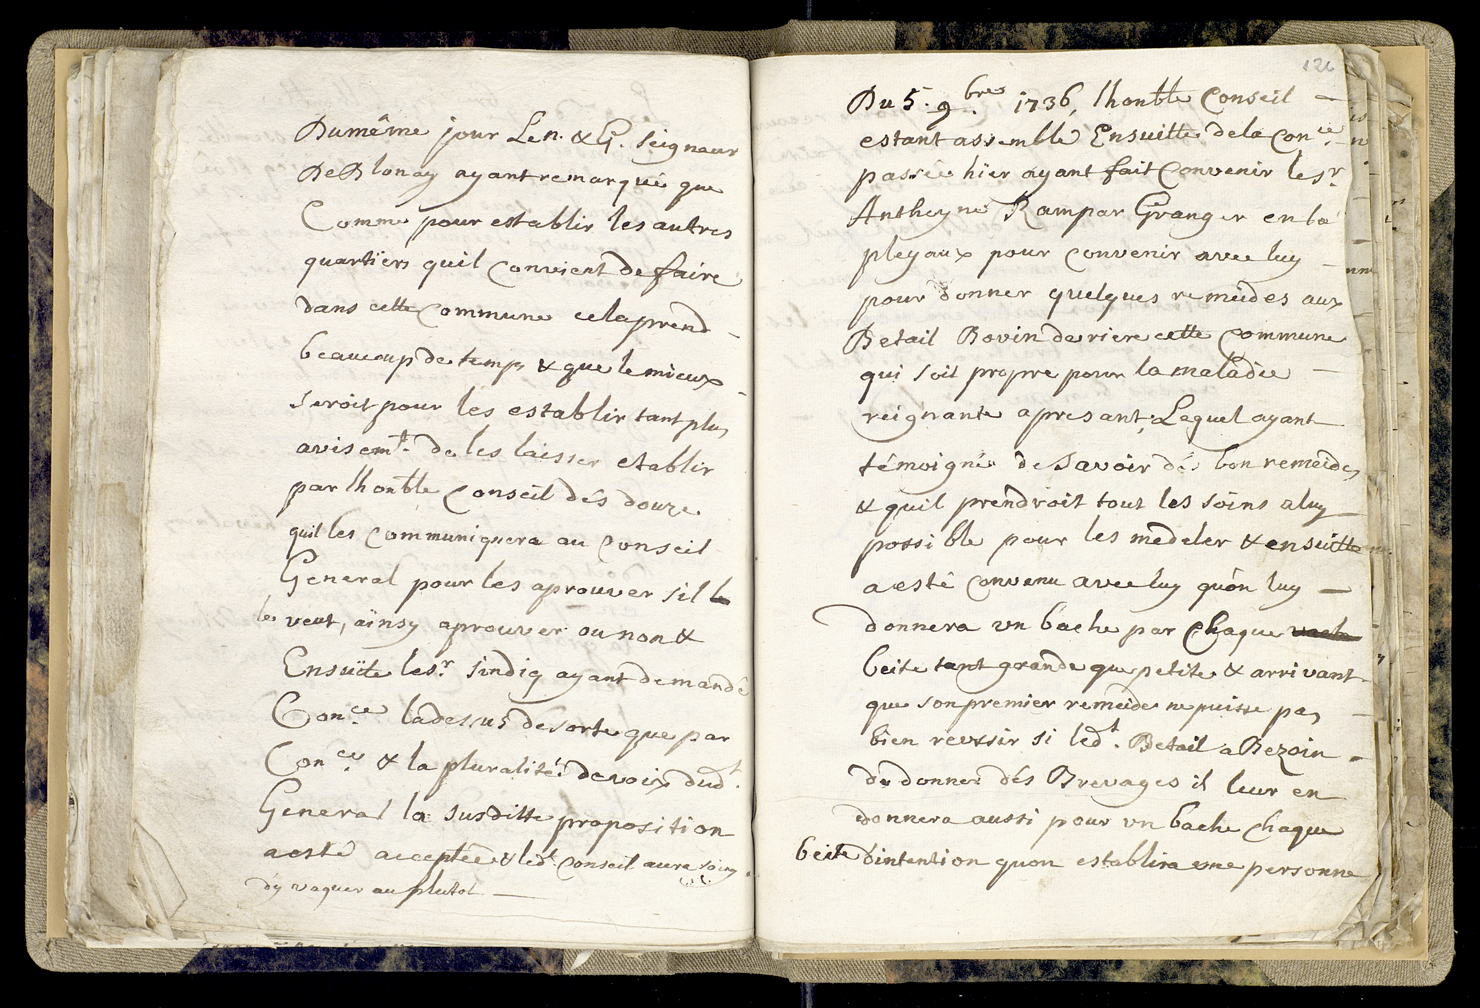 Du même jour Le n. & G. Seigneur
De Blonay ayant remarqué que
Comme pour establir les autres
quartiers quil convient de faire
dans cette Commune cela prend
beaucoup de temps & que le mieux
seroit pour les establir tant plus
avisemt. de les laisser establir
par lhonble Conseil dés douze
quil les Communiquera au Conseil
General pour les aprouver sil le
les veut, ainsy aprouver ou non &
Ensuitte le sr. sindiq ayant demandé
Conce. la dessus de sorte que par
Conce. & la pluralité de voix dudt.
General la susditte proposition
a esté acceptée & ledt. Conseil aura soing
d'y vaquer au plutot
126
Du 5. 9bre 1736, lhonble Conseil
estant assemble Ensuitte de la Conce.
passée hier ayant fait Convenir le sr
Antheyne Rampar Granger en la
pleyaux pour convenir avec luy
pour donner quelques remeides aux
Betail Bovin deriere cette Commune
qui soit propre pour la maladie
reignante apresant; Lequel ayant
témoigné de savoir dés bon remeides
& quil prendroit tout les soins a luy
possible pour les medeler & ensuitte
a esté convenu avec luy quòn luy
donnera un bache par Chaque
beite tant grande que petite & arrivant
que son premier remeide ne puisse pas
bien reussir si ledt. Betail a Bezoin
de donner dés Brevages il leur en
donnera aussi pour un bache chaque
beite d'intention quon establira une personne